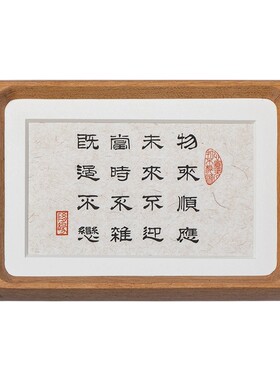 物來順應
未來不迎
當時不雜
既過不戀